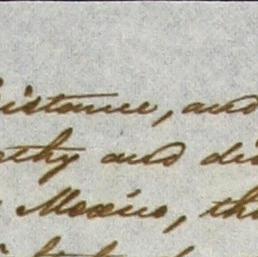 istance, and
athy and dis
Mexico, th